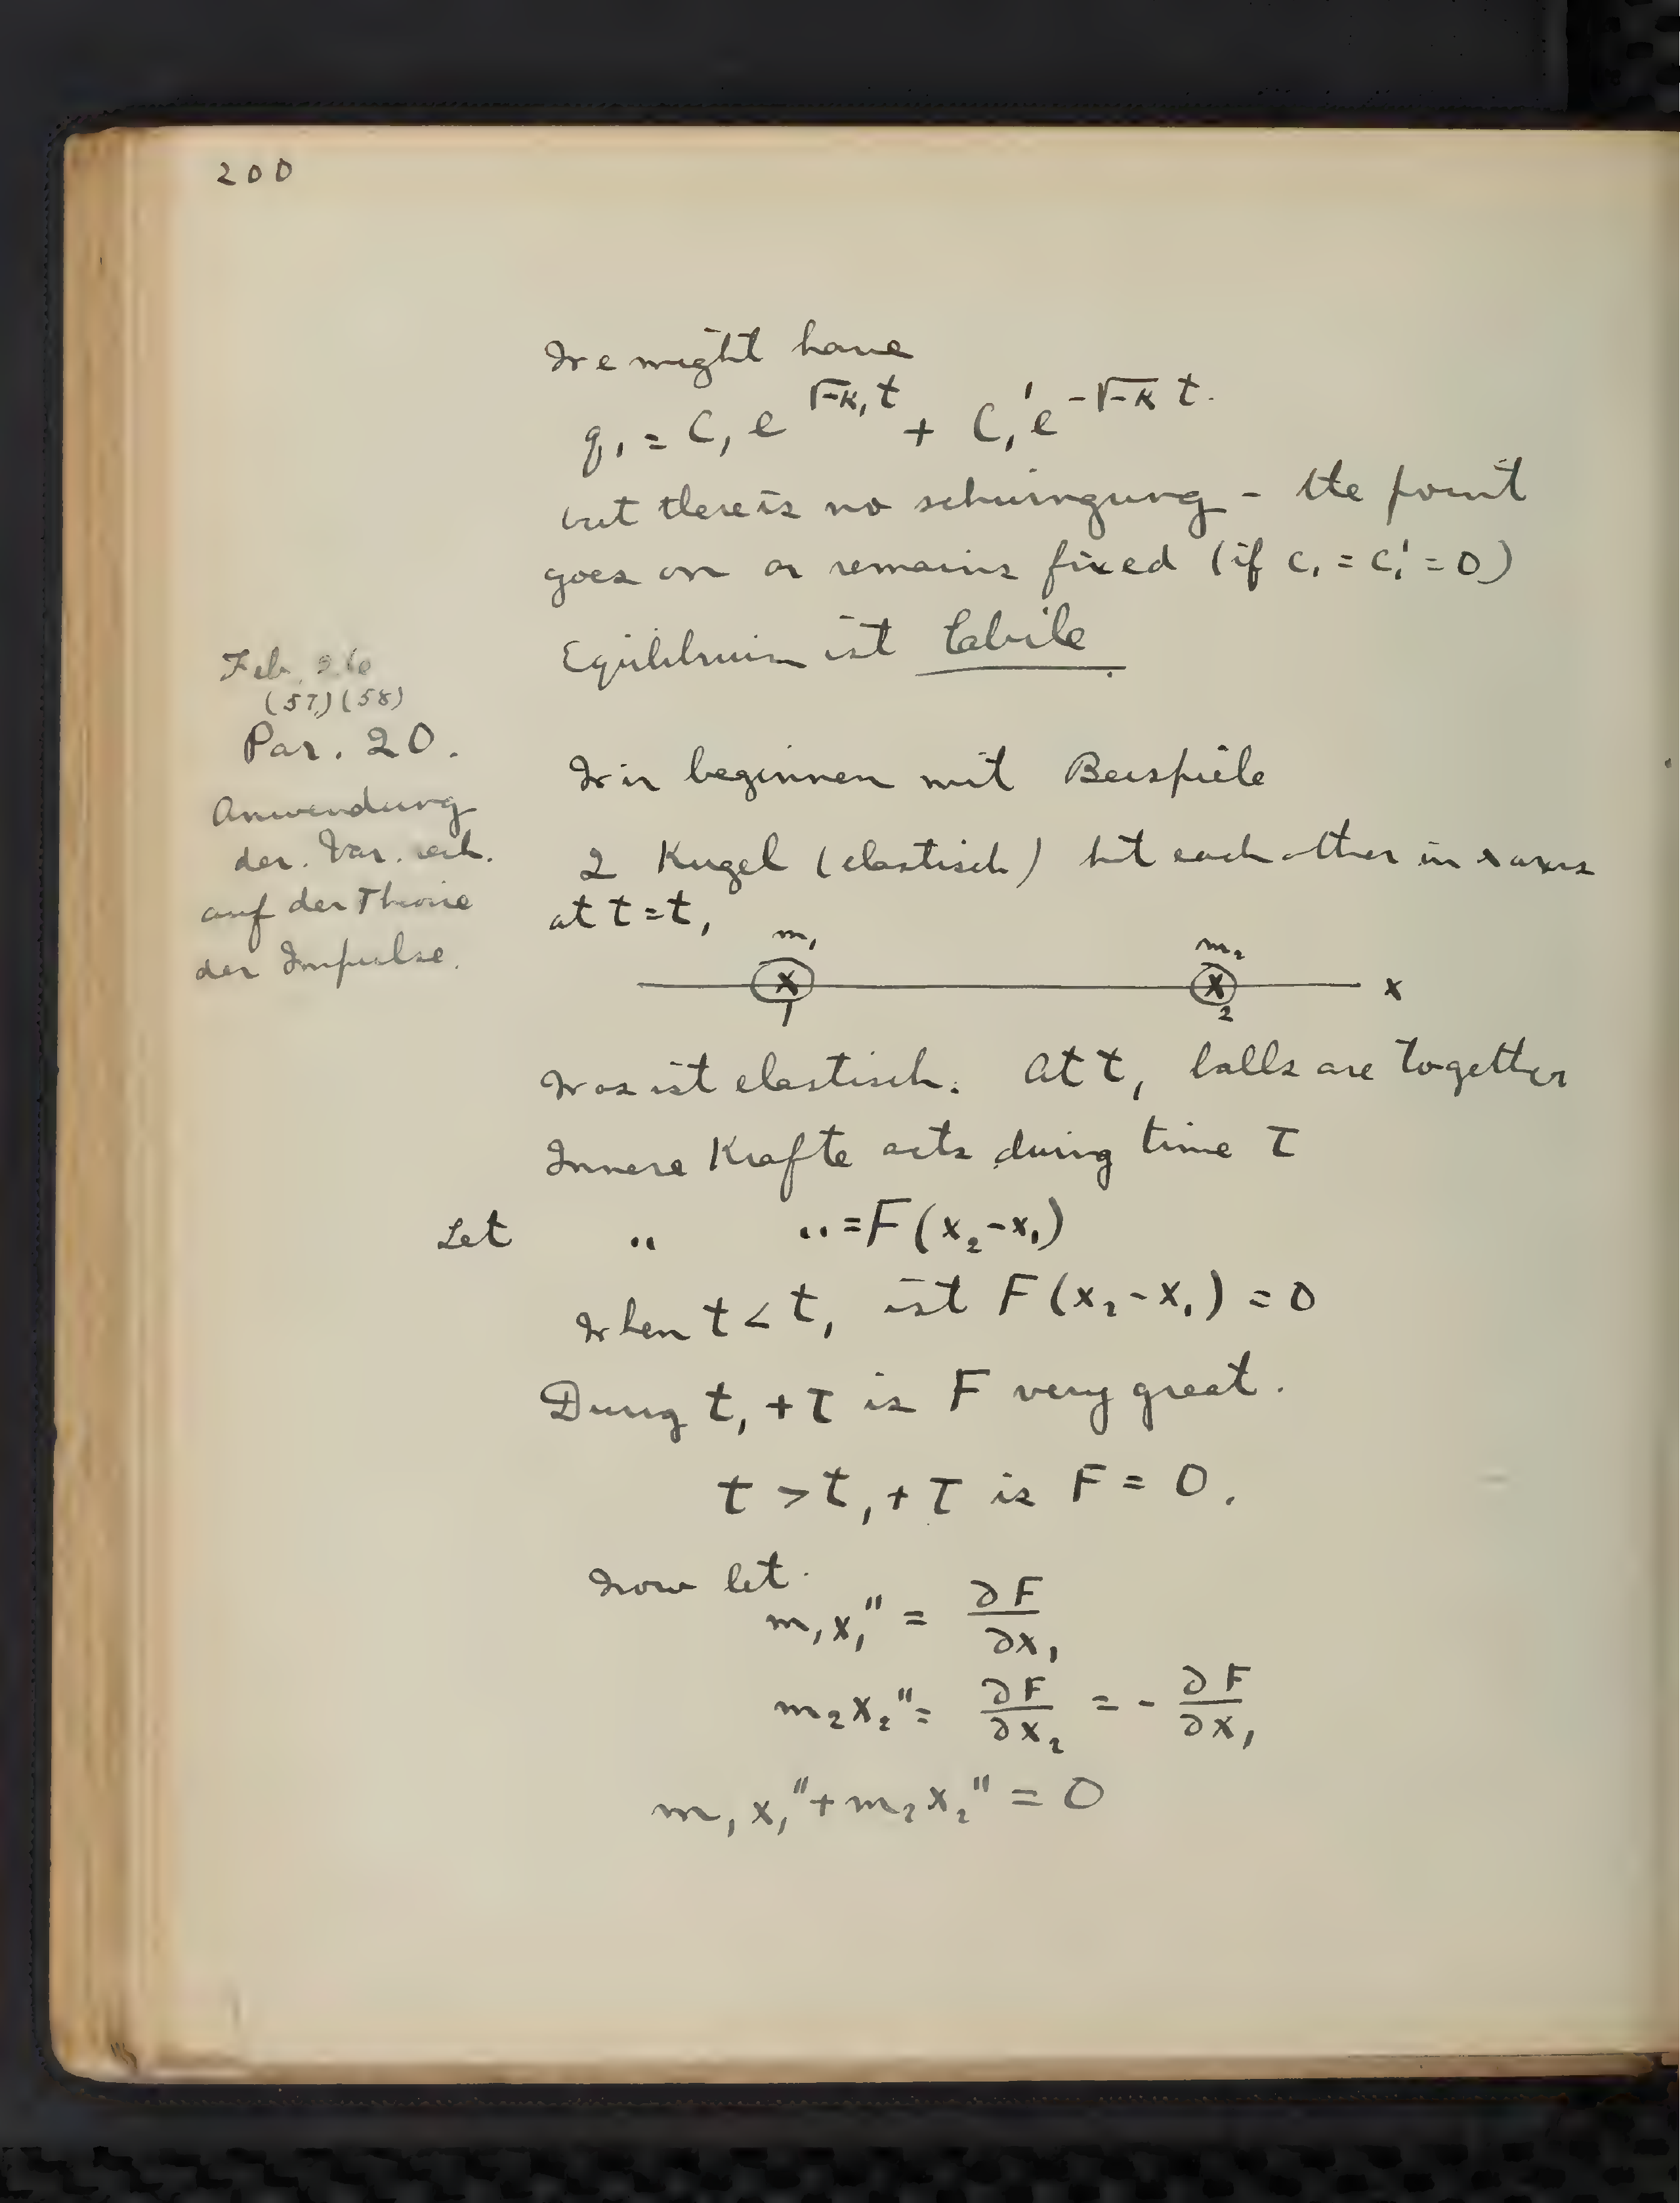 200
We might have
q₁ = C₁ e^{√-κ₁ t} + C₁' e^{-√-κ t}.
but there is no schwingung - the point
goes on or remains fixed (if c₁ = c₁' = 0)
Equilibrium ist labile.
Feb. 26
(57)(58)
Par. 20.
Anwendung
der. Var. rech.
auf der Theorie
der Impulse.
Wir beginnen mit Beispiele
2 Kugel (elastisch) hit each other in x axis
at t = t₁
m₁ m₂
x x x
1 2
Was ist elastisch. At t₁ balls are together
Innere Krafte acts during time τ
Let " " = F(x₂-x₁)
When t < t₁ ist F(x₂-x₁) = 0
During t₁ + τ is F very great.
t > t₁ + τ is F = 0.
Now let
m₁x₁'' = ∂F/∂x₁
m₂x₂'' = ∂F/∂x₂ = - ∂F/∂x₁
m₁x₁'' + m₂x₂'' = 0